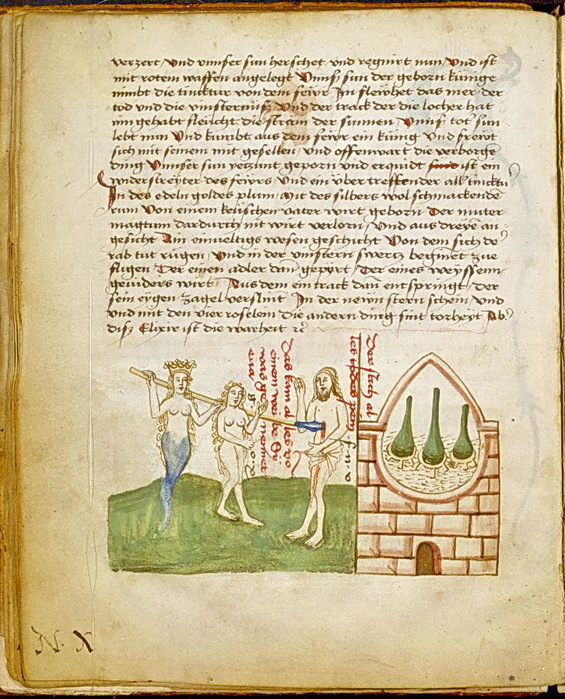 verzert vnd vnnser sun herschet vnd regnirt nun vnd ist
mit rotem waffen angelegt Vnnser sun der geborn künige
nimbt die tinktur von dem feivr In fleivhet das mer der
tod vnd die vinsternuß Vnd der track der die locher hat
inn gehabt fleücht die stram der sunnen Vnnser tot sun
lebt nun Vnd kumbt aus dem feivr ein küng Vnd frewt
sich mit seinem mit gesellen Vnd offenwart die verborgen
ding Vnnser sun yezunt geporn vnd erquickt ist ein
wnderstreyter des feivrs Vnd ein vber treffender all tincktur
In des edeln goldes plum Mit des silbers wolschmackende
Von einem keüschen vater wirt geborn Der muter
magtum dardurch nit wirt verlorn Vnd aus dreyen an
gesicht Ain einueltigs wesen geschicht Von dem sich de
rab tut rügen Vnd in der vinstern swertz beginnet zue
flügen Der einen adler dan gepyrt Der eines weyssenn
geuiders wirt Aus dem ein track dan entspringt der
sein eygen zagel verslint In der newn stern schein Vnd
vnd mit den vier roselein die andern ding sint torheyt Ab
diß Elixir ist die warheit
Der fluch al
les todes
Das kam al les vo
einem
N. X